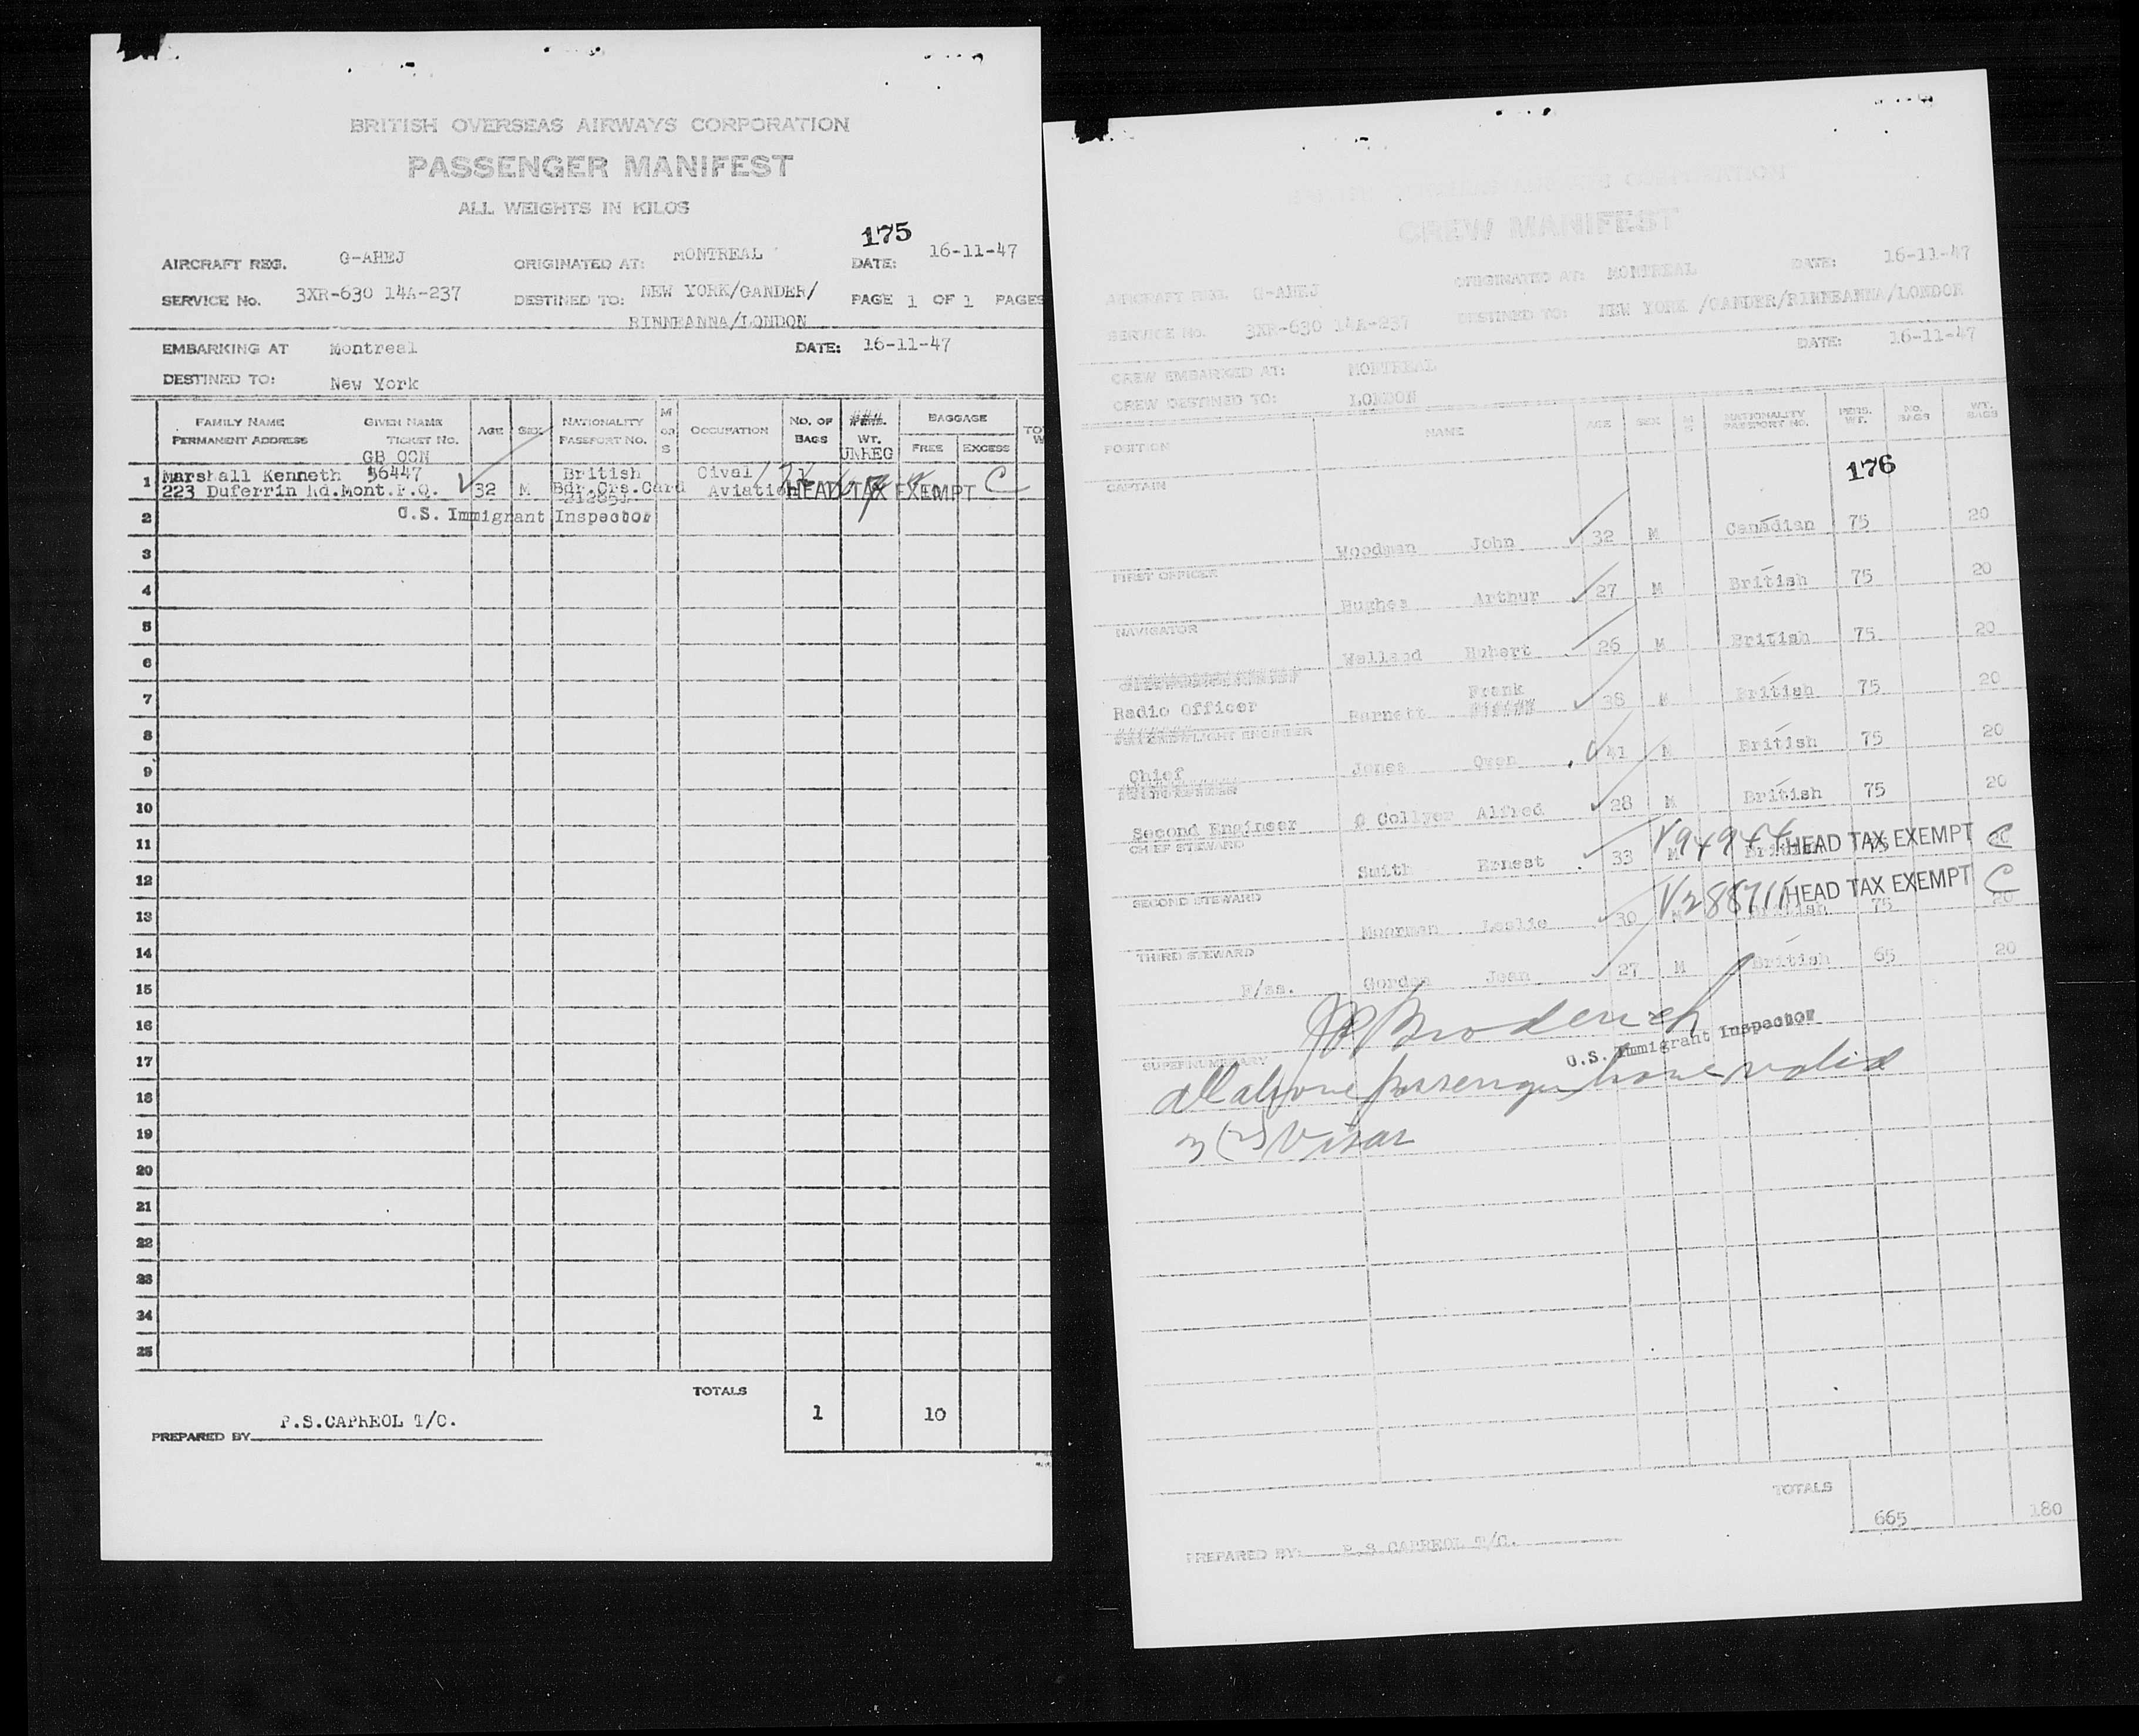 BRITISH OVERSEAS AIRWAYS CORPORATION
PASSENGER MANIFEST
ALL WEIGHTS IN KILOS
175
AIRCRAFT REG. G-AHEJ ORIGINATED AT: MONTREAL DATE: 16-11-47
SERVICE No. 3XR-630 14A-237 DESTINED TO: NEW YORK/GANDER/ PAGE 1 OF 1 PAGES
RINNEANNA/LONDON
EMBARKING AT Montreal DATE: 16-11-47
DESTINED TO: New York
FAMILY NAME GIVEN NAME AGE SEX NATIONALITY M OR S OCCUPATION NO. OF BAGS WT. UNREG BAGGAGE
PERMANENT ADDRESS TICKET No. PASSPORT No. FREE EXCESS
GB OCN
1 Marshall Kenneth 56447 British Cival
223 Duferrin Rd.Mont.P.Q. 32 M Bdr.Crs.Card Aviation HEAD TAX EXEMPT C
2 U.S. Immigrant Inspector
3
4
5
6
7
8
9
10
11
12
13
14
15
16
17
18
19
20
21
22
23
24
25
TOTALS 1 10
PREPARED BY P.S.CAPREOL T/C.
CORPORATION
CREW MANIFEST
AIRCRAFT REG. G-AHEJ ORIGINATED AT: MONTREAL DATE: 16-11-47
SERVICE No. 3XR-630 14A-237 DESTINED TO: NEW YORK /GANDER/RINNEANNA/LONDON
CREW EMBARKED AT: MONTREAL DATE: 16-11-47
CREW DESTINED TO: LONDON
POSITION NAME AGE SEX M S NATIONALITY PASSPORT NO. PERS. WT. NO. BAGS WT. BAGS
176
CAPTAIN
Woodman John 32 M Canadian 75 20
FIRST OFFICER
Hughes Arthur 27 M British 75 20
NAVIGATOR
Welland Hubert 26 M British 75 20
Frank
Radio Officer Barnett 38 M British 75 20
FLIGHT ENGINEER
Chief Jones Owen 41 M British 75 20
Second Engineer Collyer Alfred 28 M British 75 20
CHIEF STEWARD
Smith Ernest 33 M British 75 HEAD TAX EXEMPT C
SECOND STEWARD
Moorman Leslie 30 M V288711 British 75 HEAD TAX EXEMPT C 20
THIRD STEWARD
F/ss. Gordon Jean 27 M British 65 20
Broderick
U.S. Immigrant Inspector
SUPERNUMERARY
all above passengers have valid
3 (2) Visas
TOTALS 665 180
PREPARED BY: P.S CAPREOL T/C.